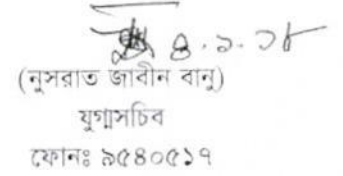 ৪.১.১৮
(নুসরাত জাবীন বানু)
যুগ্মসচিব
ফোনঃ ৯৫৪০৫১৭